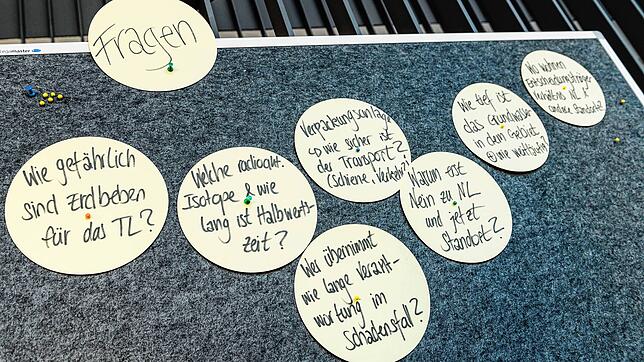 Fragen
Wie gefährlich
sind Erdbeben
für das TL?
Welche radioakt.
Isotope & wie
lang ist Halbwerts-
zeit?
Verpackungsanlage
wie sicher ist
der Transport?
(Schiene, Verkehr?)
Wer übernimmt
wie lange Verant-
wortung im
Schadensfall?
Warum erst
Nein zu NL
und jetzt
Standort?
Wie tief ist
das Grundwasser
in dem Gebiet
Wo können
Entscheidungsträger
NL
andere Standorte?